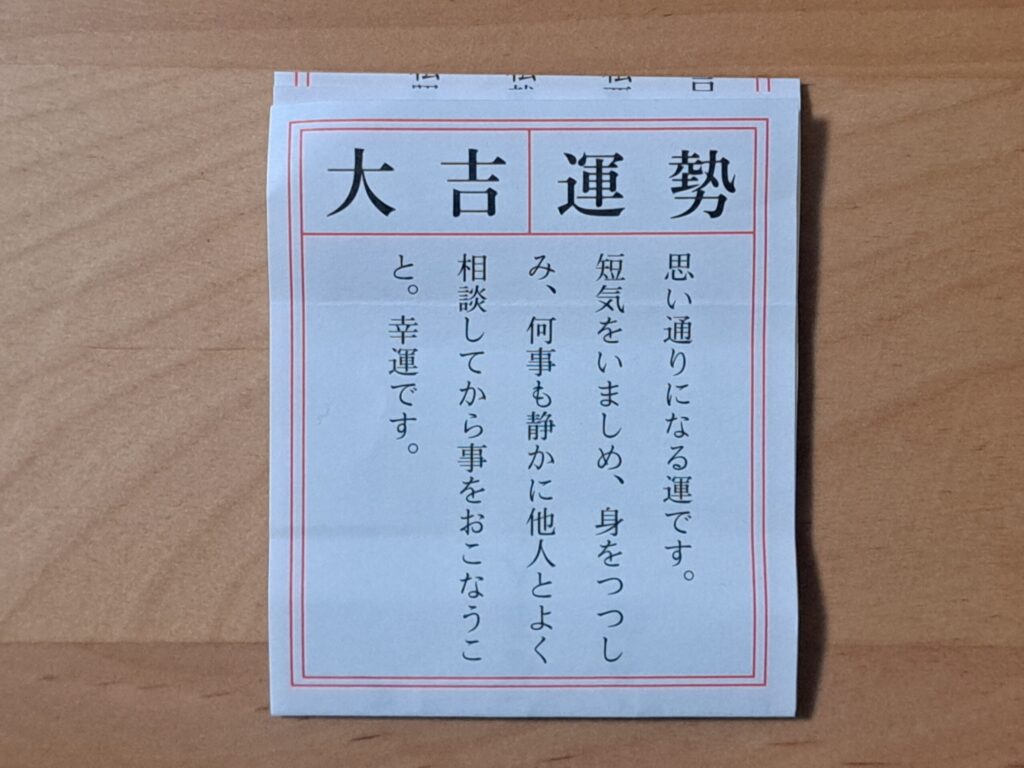 大吉
運勢
思い通りになる運です。
短気をいましめ、身をつつし
み、何事も静かに他人とよく
相談してから事をおこなうこ
と。幸運です。